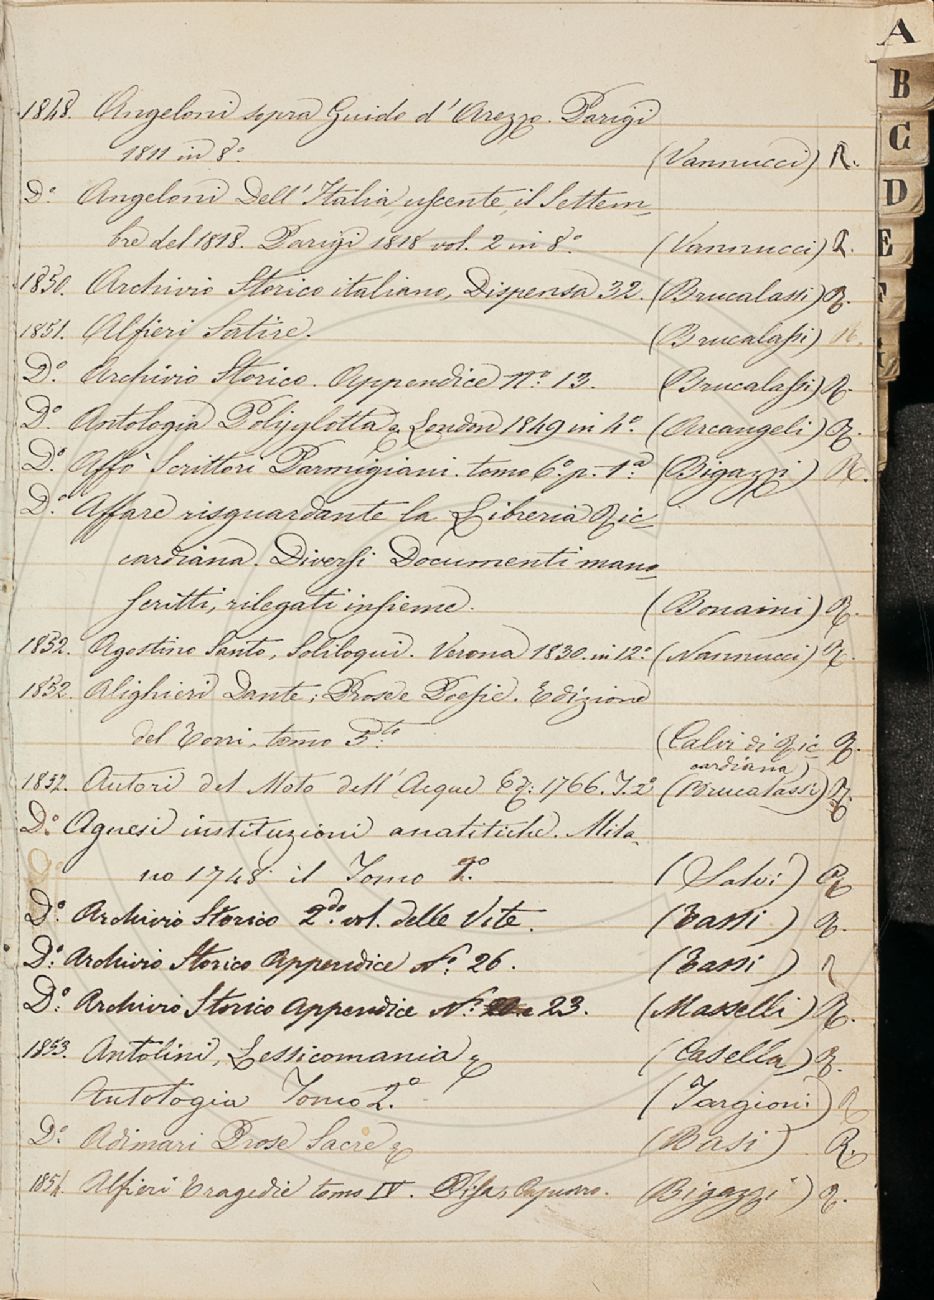 A
B
C
D
E
F
1848. Angeloni sopra Guido d'Arezzo. Parigi
1811 in 8.° (Vannucci) R.
D.° Angeloni Dell'Italia, uscente, il Settem-
bre del 1818. Parigi 1818 vol. 2 in 8.° (Vannucci) R.
1850. Archivio Storico italiano, Dispensa 32. (Brucalassi) R.
1851. Alfieri Satire. (Brucalassi) R.
D.° Archivio Storico. Appendice N.° 13. (Brucalassi) R.
D.° Antologia Polyglotta London 1849 in 4.° (Arcangeli) R.
D.° Affò Scrittori Parmigiani. tomo 6.° p. 1.a (Bigazzi) R.
D.° Affare risguardante la Libreria Ric-
cardiana. Diversi Documenti mano-
scritti, rilegati insieme. (Bonaini) R.
1852. Agostino Santo, Soliloqui. Verona 1830. in 12.° (Nannucci) R.
1852. Alighieri Dante; Prose e Poesie. Edizione
del Torri, tomo (Calvi di Ric
cardiana) R.
1852. Autori del Moto dell'Acque Ez. 1766. T. 2.° (Brucalassi) R.
D.° Agnesi instituzioni analitiche. Mila-
no 1748 il Tomo (Salvi) R.
D.° Archivio Storico 2.do vol. delle Vite. (Tassi) R.
D.° Archivio Storico Appendice N.° 26. (Tassi) R
D.° Archivio Storico Appendice N.° 23. (Masselli) R.
1853. Antolini, Lessicomania (Casella) R.
Antologia Tomo 2.° (Targioni) R
D.° Adimari Prose Sacre (Basi) R.
1854. Alfieri Tragedie tomo IV. (Bigazzi) R.